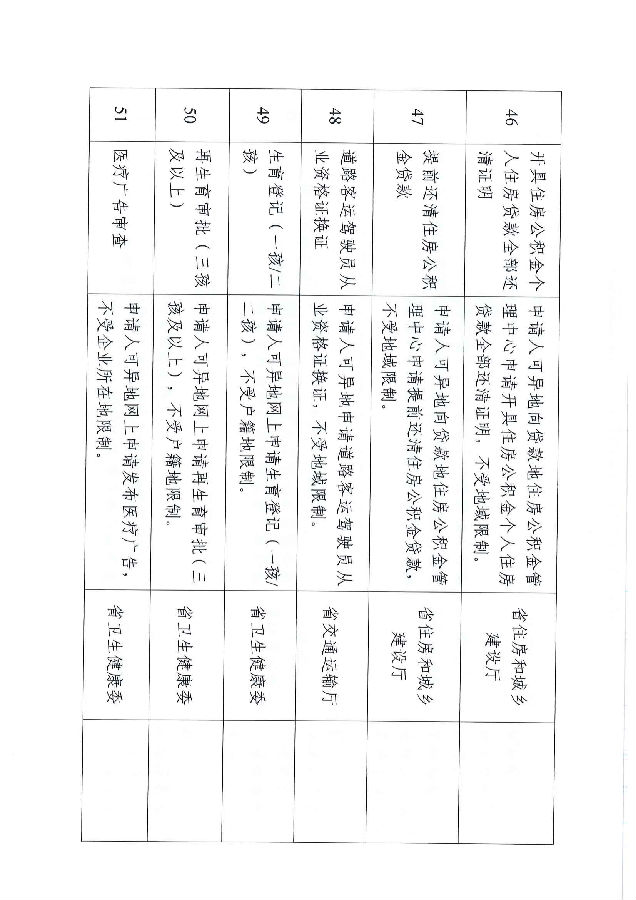 46
开具住房公积金个
人住房贷款全部还
清证明
申请人可异地向贷款地住房公积金管
理中心申请开具住房公积金个人住房
贷款全部还清证明，不受地域限制。
省住房和城乡
建设厅
47
提前还清住房公积
金贷款
申请人可异地向贷款地住房公积金管
理中心申请提前还清住房公积金贷款，
不受地域限制。
省住房和城乡
建设厅
48
道路客运驾驶员从
业资格证换证
申请人可异地申请道路客运驾驶员从
业资格证换证，不受地域限制。
省交通运输厅
49
生育登记（一孩/二
孩）
申请人可异地网上申请生育登记（一孩/
二孩），不受户籍地限制。
省卫生健康委
50
再生育审批（三孩
及以上）
申请人可异地网上申请再生育审批（三
孩及以上），不受户籍地限制。
省卫生健康委
51
医疗广告审查
申请人可异地网上申请发布医疗广告，
不受企业所在地限制。
省卫生健康委